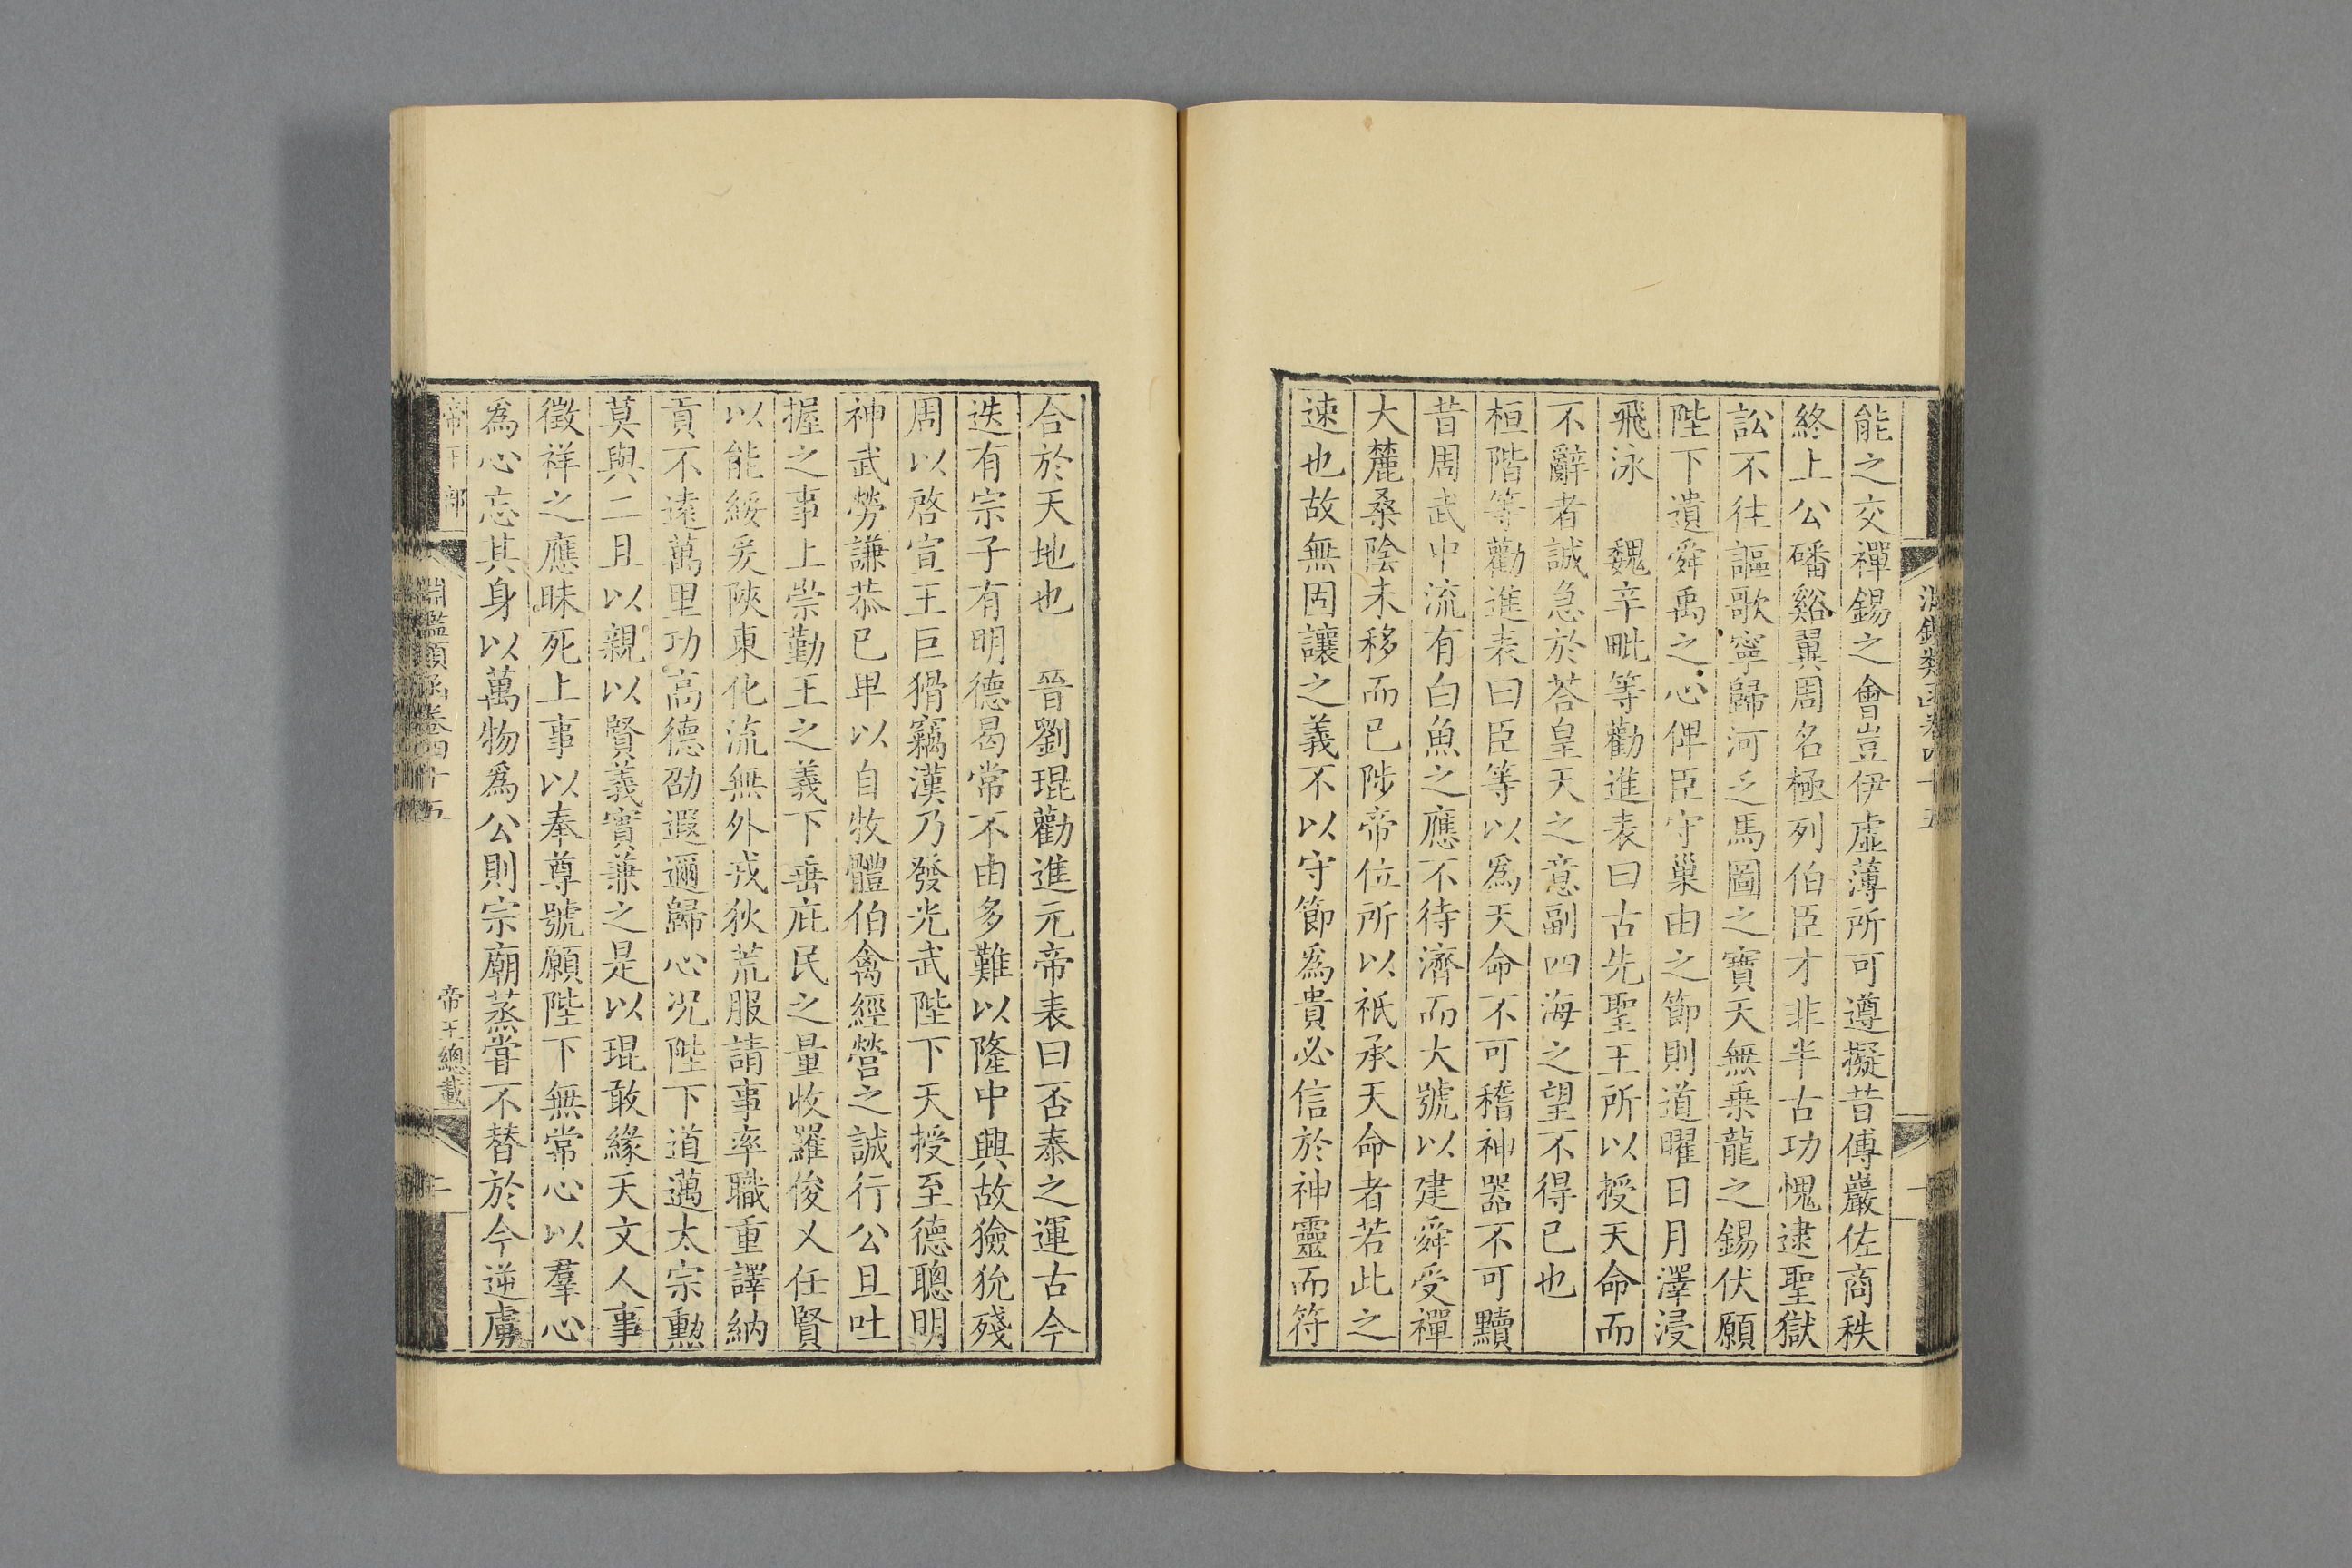 能之交禪錫之會豈伊虛薄所可遵擬昔傅巖佐商秩
終上公磻谿翼周名極列伯臣才非半古功愧逮聖獄
訟不往謳歌寧歸河乏馬圖之寶天無乗龍之錫伏願
陛下遺舜禹之心俾臣守巢由之節則道曜日月澤浸
飛泳　魏辛毗等勸進表曰古先聖王所以授天命而
不辭者誠急於荅皇天之意副四海之望不得已也
桓階等勸進表曰臣等以爲天命不可稽神器不可黷
昔周武中流有白魚之應不待濟而大號以建舜受禪
大麓桑陰未移而已陟帝位所以祇承天命者若此之
速也故無固讓之義不以守節爲貴必信於神靈而符
合於天地也　晉劉琨勸進元帝表曰否泰之運古今
迭有宗子有明德曷常不由多難以隆中興故獫狁殘
周以啓宣王巨猾竊漢乃發光武陛下天授至德聰明
神武勞謙恭已卑以自牧體伯禽經營之誠行公旦吐
握之事上崇勤王之義下垂庇民之量收羅俊乂任賢
以能綏爰陝東化流無外戎狄荒服請事率職重譯納
貢不遠萬里功高德劭遐邇歸心况陛下道邁太宗勲
莫與二且以親以賢義實兼之是以琨敢緣天文人事
徵祥之應昧死上事以奉尊號願陛下無常心以羣心
爲心忘其身以萬物爲公則宗廟蒸甞不替於今逆虜
帝王部
淵鑑類函卷四十五
帝王總載
二